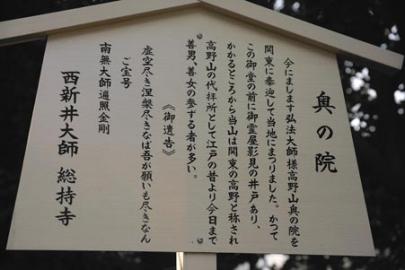 奥の院
今にまします弘法大師様高野山奥の院を
関東に奉迎して当地にまつりました。かつて
この御堂の前に御霊屋影見の井戸あり、
かかるところから当山は関東の高野と称され
高野山の代拝所として江戸の昔より今日まで
善男、善女の参する者が多い。
《御遺告》
虚空尽き涅槃尽きなば吾が願いも尽きなん
ご宝号
南無大師遍照金剛
西新井大師 総持寺